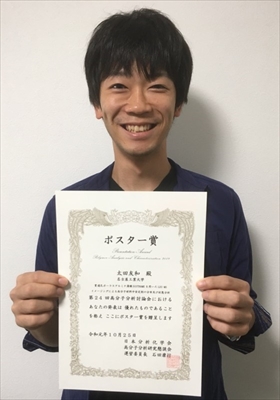 ポスター賞
Presentation Award
Polymer Analysis and Characterization 2019
太田友和 殿
名古屋工業大学
第24回高分子分析討論会における
あなたの発表は 優れたものであること
を称え ここにポスター賞を贈呈します
令和元年10月25日
日本分析化学会
高分子分析研究懇談会
運営委員長 石田康行